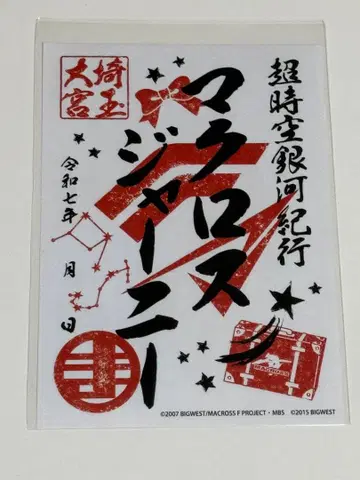 超時空銀河紀行
マクロス
ジャーニー
埼玉
大宮
令和七年 月 日
MACROSS
©2007 BIGWEST/MACROSS F PROJECT・MBS ©2015 BIGWEST